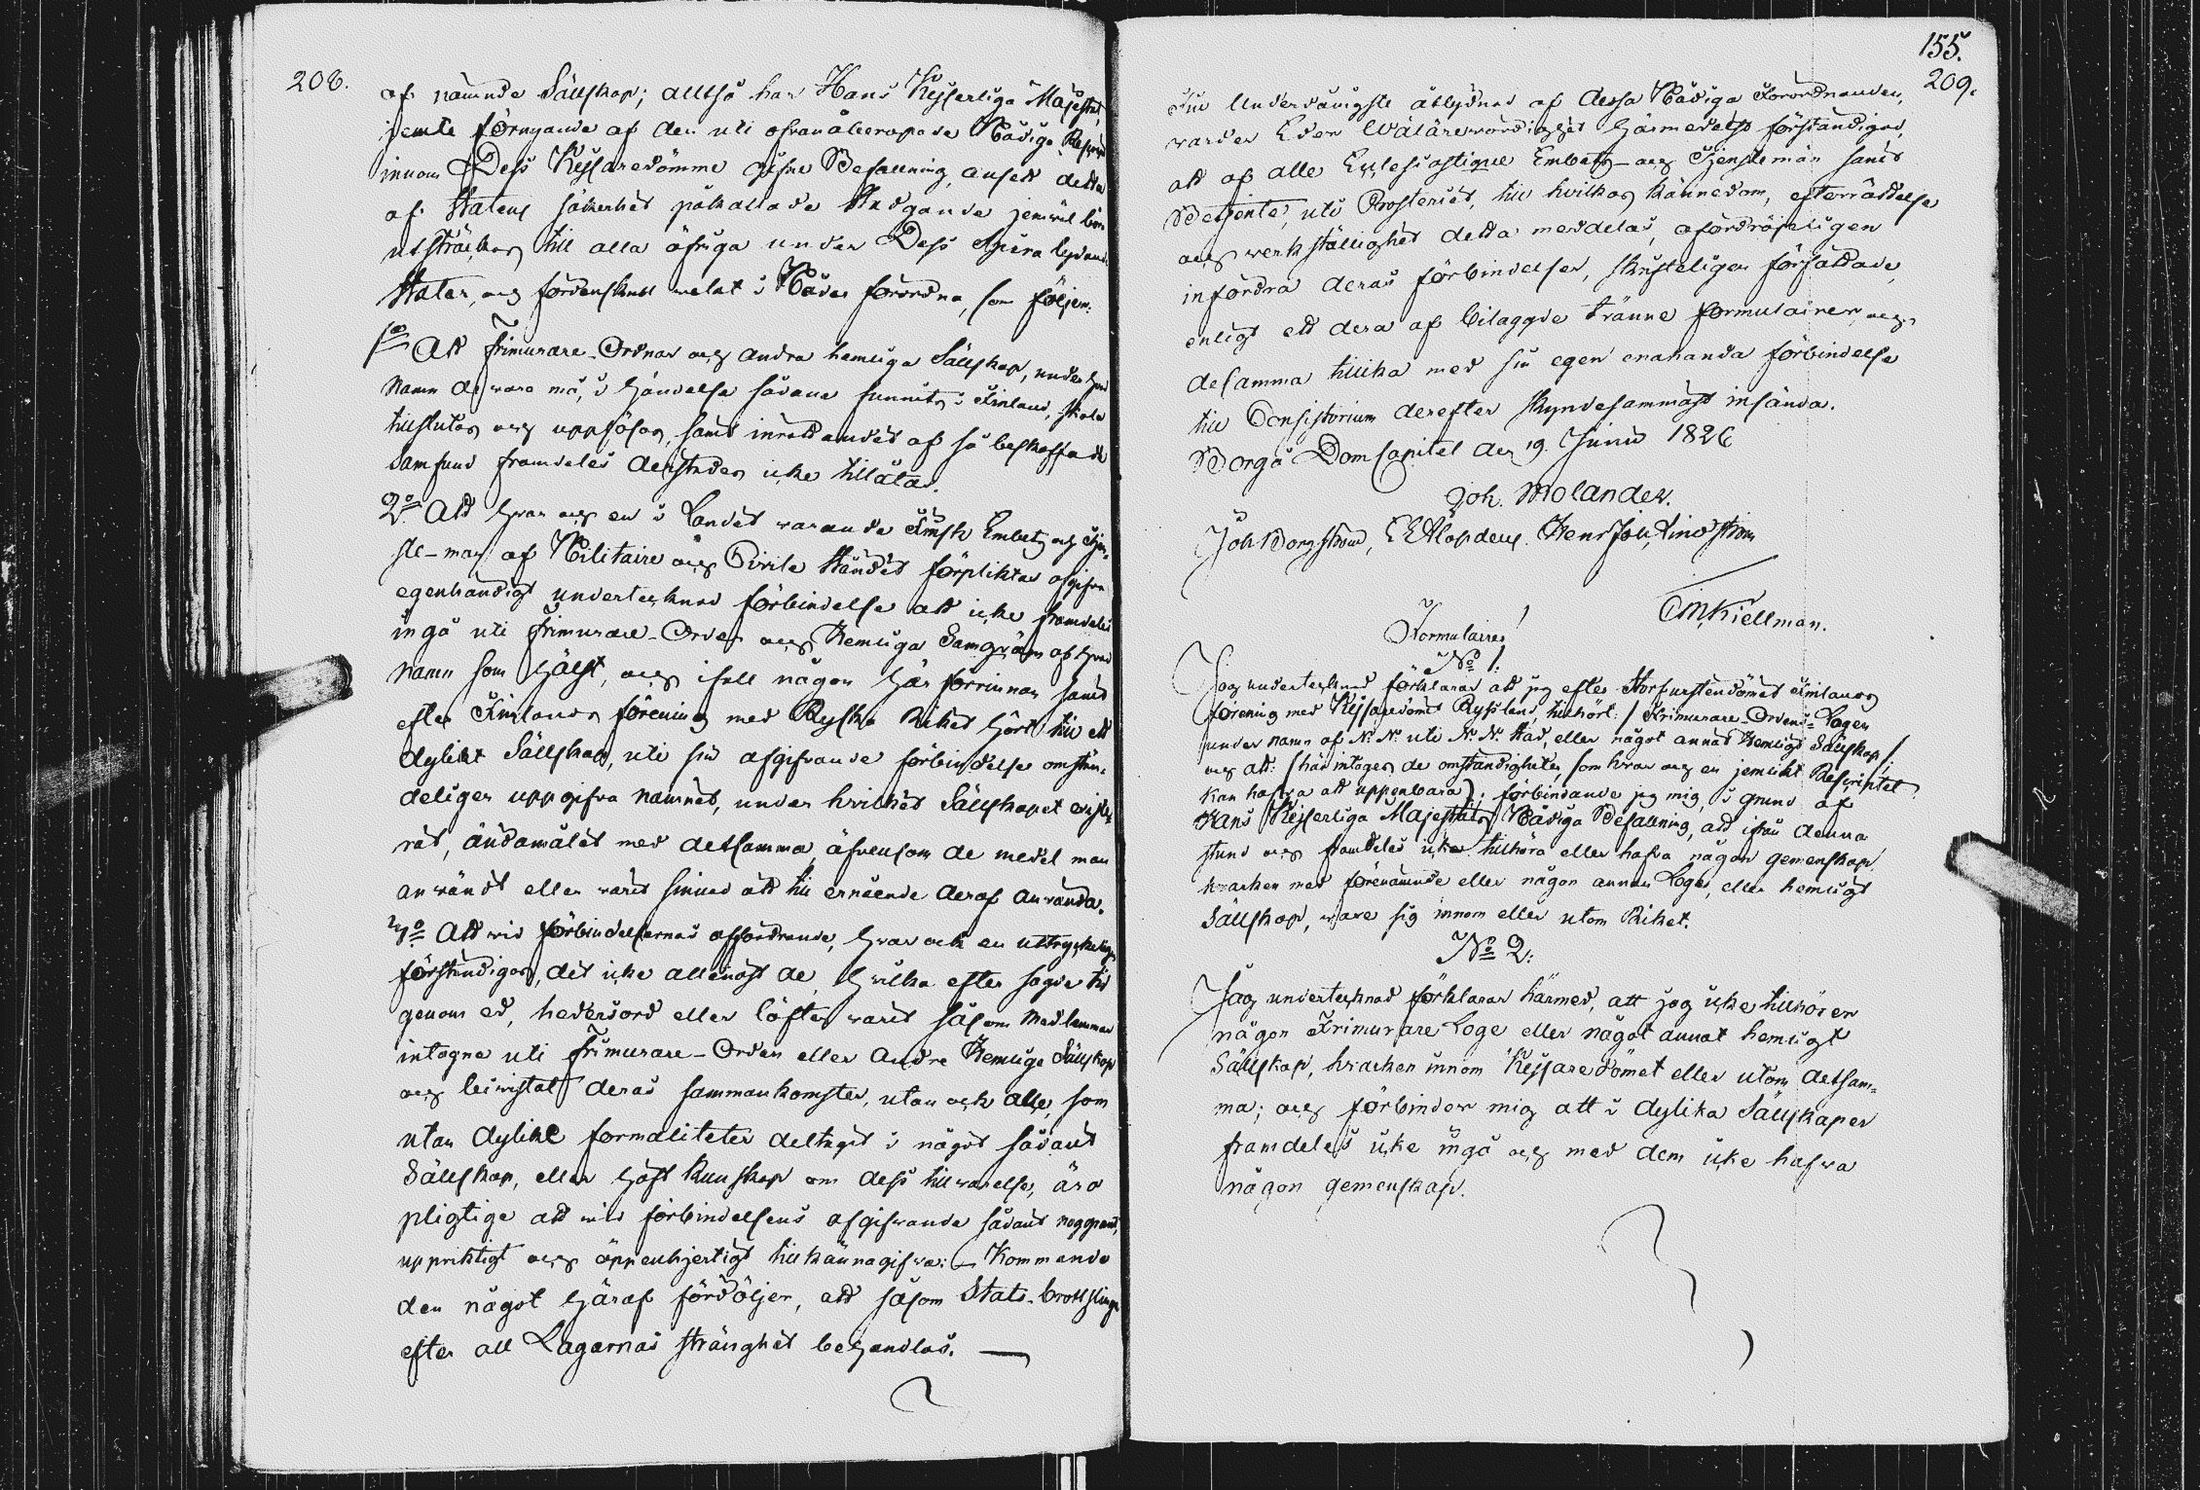 208.
af nämnde Sällskap; alltså har Hans Kejserliga Majestät,
jemte förnyande af den uti ofvanåberopade Nådiga Rescript
innom Dess Kejsaredömme gifne Befallning, ansett detta
af Statens säkerhet påkallade stadgande jemväl böra
utsträckas till alla öfriga under Dess Spira lydande
Stater, och fördenskull welat i Nåder förordna, som följer:
1mo Att Frimurare-Ordnar och andra hemliga Sällskap, under hvad
Namn de vara må, i händelse sådane funnits i Finland, skola
tillslutas och upphöfvas, samt inrättandet af så beskaffade
Samfund framdeles derstädes icke tillåtas.
2o Att hvar och en i Landet warande Finsk Embets och Tjen-
ste-man af Militaire och Civile Ståndet förpliktas afgifva
egenhändigt undertecknad förbindelse att icke framdeles
ingå uti Frimurare-Orden och Hemliga Samqväm af hvad
Namn som hälst, och ifall någon här förrinnan samt
efter Finlands förening med Ryska Riket hört till ett
dylikt Sällskap, uti sin afgifvande förbindelse omstän-
deligen uppgifva namnet, under hvilket Sällskapet existe-
rat, ändamålet med detsamma, äfvensom de medel man
användt eller warit sinnad att till ernående deraf använda.
3o Att wid förbindelsernas affordrande, hvar och en uttryckeligen
förständigas, det icke allenast de, hvilka efter sagde tid
genom ed, hedersord eller löften warit såsom Medlemmar
intagne uti Frimurare-Orden eller Andra Hemliga Sällskap
och bewistat deras sammankomster, utan och alle, som
utan dylika formaliteter deltagit i något sådant
Sällskap, eller haft kunskap om dess tillwarelse, äro
pligtige att wid förbindelsens afgifvande sådant noggrant,
uppriktigt och öppenhjertigt tillkännagifva: – Kommande
den något häraf fördöljer, att såsom Stats-brottsling
efter all Lagarnas stränghet behandlas. —
155.
209.
Till Underdånigste åtlydnad af dessa Nådiga Förordnanden,
warder Eder Wälärewördighet härmedelst förständigad,
att af alle Ecclesiastique Embets- och Tjenstemän samt
Betjente, uti Prosteriet, till hvilkas kännedom, efterrättelse
och werkställighet detta meddelas, ofördröjeligen
infordra deras förbindelser, skrifteligen författade,
enligt ett dera af bilaggde tvänne formulairer, och
desamma tillika med sin egen enahanda förbindelse
till Consistorium derefter skyndesammast insända.
Borgå Domcapitel den 19. Junii 1826
Joh. Molander.
Joh Borgström, E E Alopdeus, Henr Joh, Lindström
C M Kiellman.
Formulairer
No 1.
Jag undertecknad förklarar att jag efter Storfurstendömet Finlands
förening med Kejsaredömet Ryssland, tillhört: / Frimurare-Ordens-Logen
under namn af N. N. uti N. N. stad, eller något annat Hemligt Sällskap /
och att: / här intages de omständigheter, som hvar och en jemlikt Rescriptet
kan hafva att uppenbara /; förbindande jag mig, i grund af
Hans Kejserliga Majestäts Nådiga Befallning, att ifrån denna
stund och framdeles icke tillhöra eller hafva någon gemenskap
hvarken med förenämnde eller någon annan Loge, eller hemligt
Sällskap, ware sig innom eller utom Riket.
No 2.
Jag undertecknad förklarar härmed, att jag icke tillhörer
någon Frimurare Loge eller något annat hemligt
Sällskap, hvarken innom Kejsaredömet eller utom detsam-
ma; och förbinder mig att i dylika Sällskaper
framdeles icke ingå och med dem icke hafva
någon gemenskap.